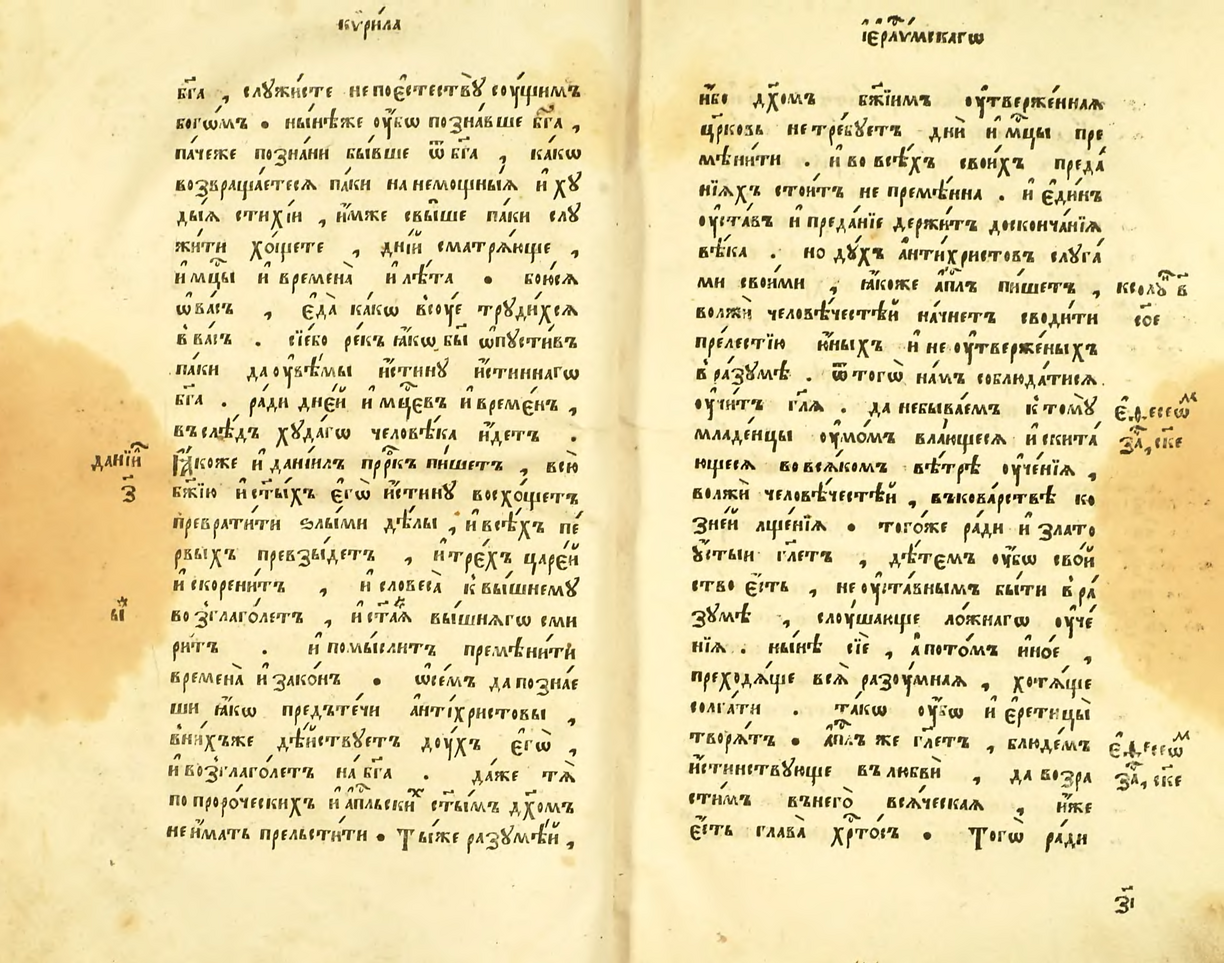 кѵри́ла
бг҃а , слꙋжи́сте не по є҆стествꙋ̀ соу́щимъ
богѡ́мъ . ны́нѣже оу҆́бѡ позна́вше бг҃а ,
па́чеже позна́ни бы́вше ѿ бг҃а , ка́кѡ
возвраща́етеся па́ки на немощны́ѧ и҆ хꙋ
ды́ѧ стихі́и , и҆́мже свы́ше па́ки слꙋ
жи́ти хо́щете , дні́й сматрѧ́юще ,
и мцⷭ҇ы и҆ времена̀ и лѣ́та . бою́сѧ
ѡ҆ ва́съ , є҆да̀ ка́кѡ всоу́е трꙋди́хсѧ
в ва́съ . сі́ебо ре́къ ꙗ҆́кѡ бы ѡ҆пꙋсти́въ
па́ки да оу҆вѣ́мы и҆́стинꙋ и҆́стиннагѡ
бг҃а . ра́ди дне́й и мцⷭ҇евъ и҆ време́нъ ,
въ слѣ́дъ хꙋда́гѡ человѣ́ка и҆́детъ .
Ꙗ҆́коже и҆ данїи́лъ прⷪ҇ркъ пи́шетъ , всю̀
бж҃їю и ст҃ы́хъ є҆гѡ̀ и҆́стинꙋ восхо́щетъ
преврати́ти ѕлы́ми дѣ́лы , и҆ всѣ́хъ пе́
рвыхъ превзы́детъ , и҆ тре́хъ царе́й
и҆ скорени́тъ , и҆ словеса̀ к вы́шнемꙋ
возглаго́летъ , и҆ ст҃а́ѧ вы́шнѧгѡ сми
ри́тъ . и҆ помы́слитъ премѣни́ти
времена̀ и҆ зако́нъ . ѡ҆ се́мъ да позна́е
ши ꙗ҆́кѡ предъте́чи а҆нтіхристовы ,
в ни́хъже дѣ́йствꙋетъ доу́хъ є҆гѡ̀ ,
и҆ возглаго́летъ на̀ бг҃а . да́же тѧ̀
по проро́ческихъ и҆ а҆пⷭ҇льскиⷯ ст҃ы́мъ дх҃омъ
не и҆́мать прельсти́ти . Ты́же разꙋмѣ́й ,
данїиⷧ҇
з҃
в҃і
і҆ерⷭ҇лѵ́мскагѡ
и҆́бо дх҃омъ бж҃їимъ оу҆твержéннаѧ
црⷪ҇ковь не тре́бꙋетъ дни̑ и҆ мцⷭ҇ы пре
мѣни́ти . и҆ во всѣ́хъ свои́хъ преда́
нїѧхъ стои́тъ не премѣ́нна . и҆ є҆ди́нъ
оу҆ста́въ и҆ преда́нїе держи́тъ до сконча́нїѧ
вѣ́ка . но дꙋ́хъ а҆нти́христовъ слꙋга́
ми свои́ми , ꙗ҆́коже а҆пⷭ҇лъ пи́шетъ ,
волжѝ человѣ́честѣй на́чнетъ своди́ти
пре́лестїю и҆́ныхъ и҆ не оу҆тверже́ныхъ
в ра́зꙋмѣ . ѿ тогѡ̀ на́мъ соблюда́тисѧ
оу҆чи́тъ гл҃ѧ . да не быва́емъ к томꙋ̀
младе́нцы оу҆мо́мъ влаю́щесѧ и҆ скита́
ющесѧ во всѧ́комъ вѣ́трѣ оу҆че́нїѧ ,
волжѝ человѣ́честѣй , в кова́рствѣ ко́
зней лще́нїѧ . тогóже ра́ди и҆ злато
ꙋ́стыи гл҃етъ , дѣ́темъ оу҆́бѡ сво́й
ство є҆́сть , не оу҆ста́внымъ бы́ти в ра́
зꙋмѣ , слоу́шающе ло́жнагѡ оу҆че́
нїѧ . ны́нѣ сїѐ , а҆ пото́мъ и҆но́е ,
преходѧ́ще всѧ̑ разоу́мнаѧ , хотѧ́ще
солга́ти . та́кѡ оу҆́бѡ и҆ є҆ретицы̀
творѧ́тъ . а҆пⷭ҇лъ же гл҃етъ , блюде́мъ
и҆́стинствꙋюще в любвѝ , да возра
сти́мъ в него̀ всѧ́ческаѧ , и҆́же
є҆́сть глава̀ хрⷭ҇то́съ . Тогѡ̀ ра́ди
к солꙋⷩ҇ в҃
сое
є҆,ѳ,есеѡⷨ
за҃, ске
є҆,ѳ,есеѡⷨ
за҃, ске
з҃і